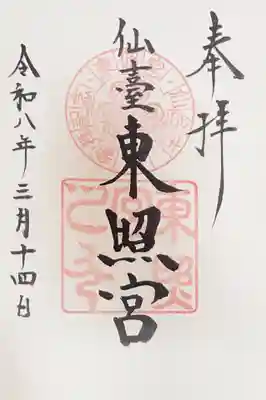 奉拝
仙臺東照宮
令和八年三月十四日